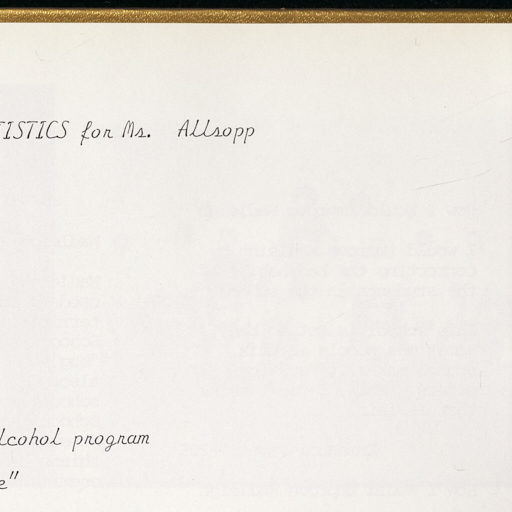 TISTICS for Ms. Allsopp
lcohol program
e"